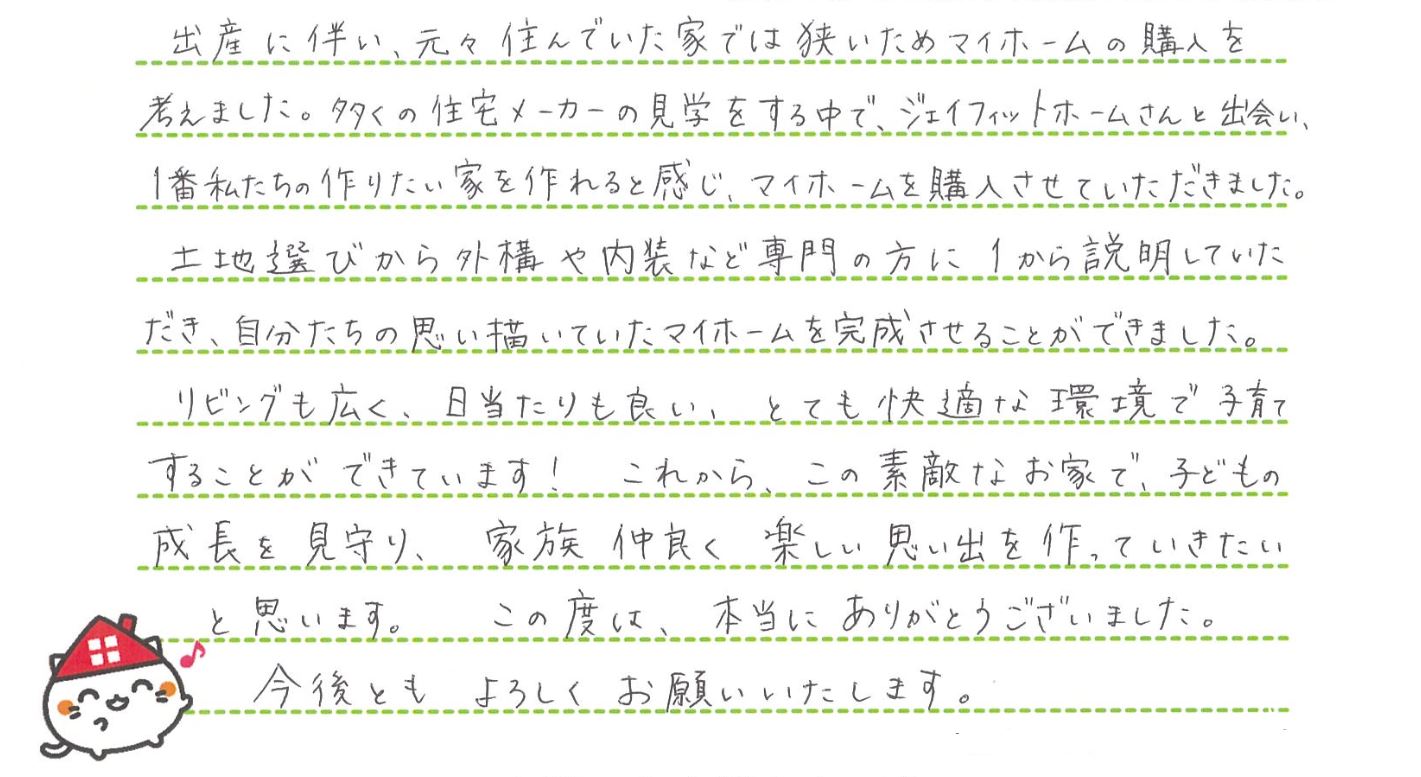 出産に伴い、元々住んでいた家では狭いためマイホームの購入を
考えました。多くの住宅メーカーの見学をする中で、ジェイフィットホームさんと出会い、
1番私たちの作りたい家を作れると感じ、マイホームを購入させていただきました。
土地選びから外構や内装など専門の方に1から説明していた
だき、自分たちの思い描いていたマイホームを完成させることができました。
リビングも広く、日当たりも良い、とても快適な環境で子育て
することができています！ これから、この素敵なお家で、子どもの
成長を見守り、家族仲良く楽しい思い出を作っていきたい
と思います。 この度は、本当にありがとうございました。
今後ともよろしくお願いいたします。